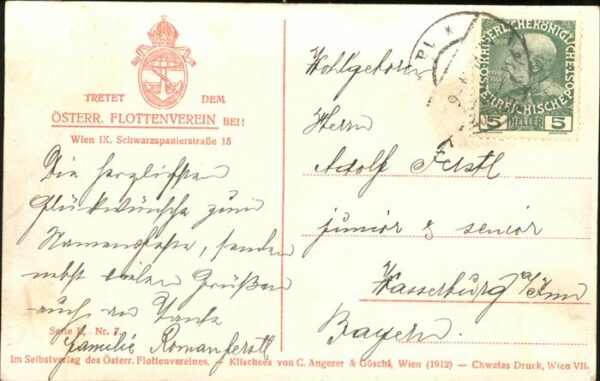 TRETET DEM
ÖSTERR. FLOTTENVEREIN BEI!
Wien IX. Schwarzspanierstraße 15
Die herzlichsten
Glückwünsche zum
Namensfeste, senden
nebst vielen Grüßen
auch an Tante
Serie V, Nr. 7
Familie Romanferstl
Wohlgeboren
Herrn
Adolf Ferstl
junior & senior
Wasserburg a/Inn
Bayern.
5 HELLER 5
Im Selbstverlag des Österr. Flottenvereines. – Klischees von C. Angerer & Göschl, Wien (1912) – Chwalas Druck, Wien VII.